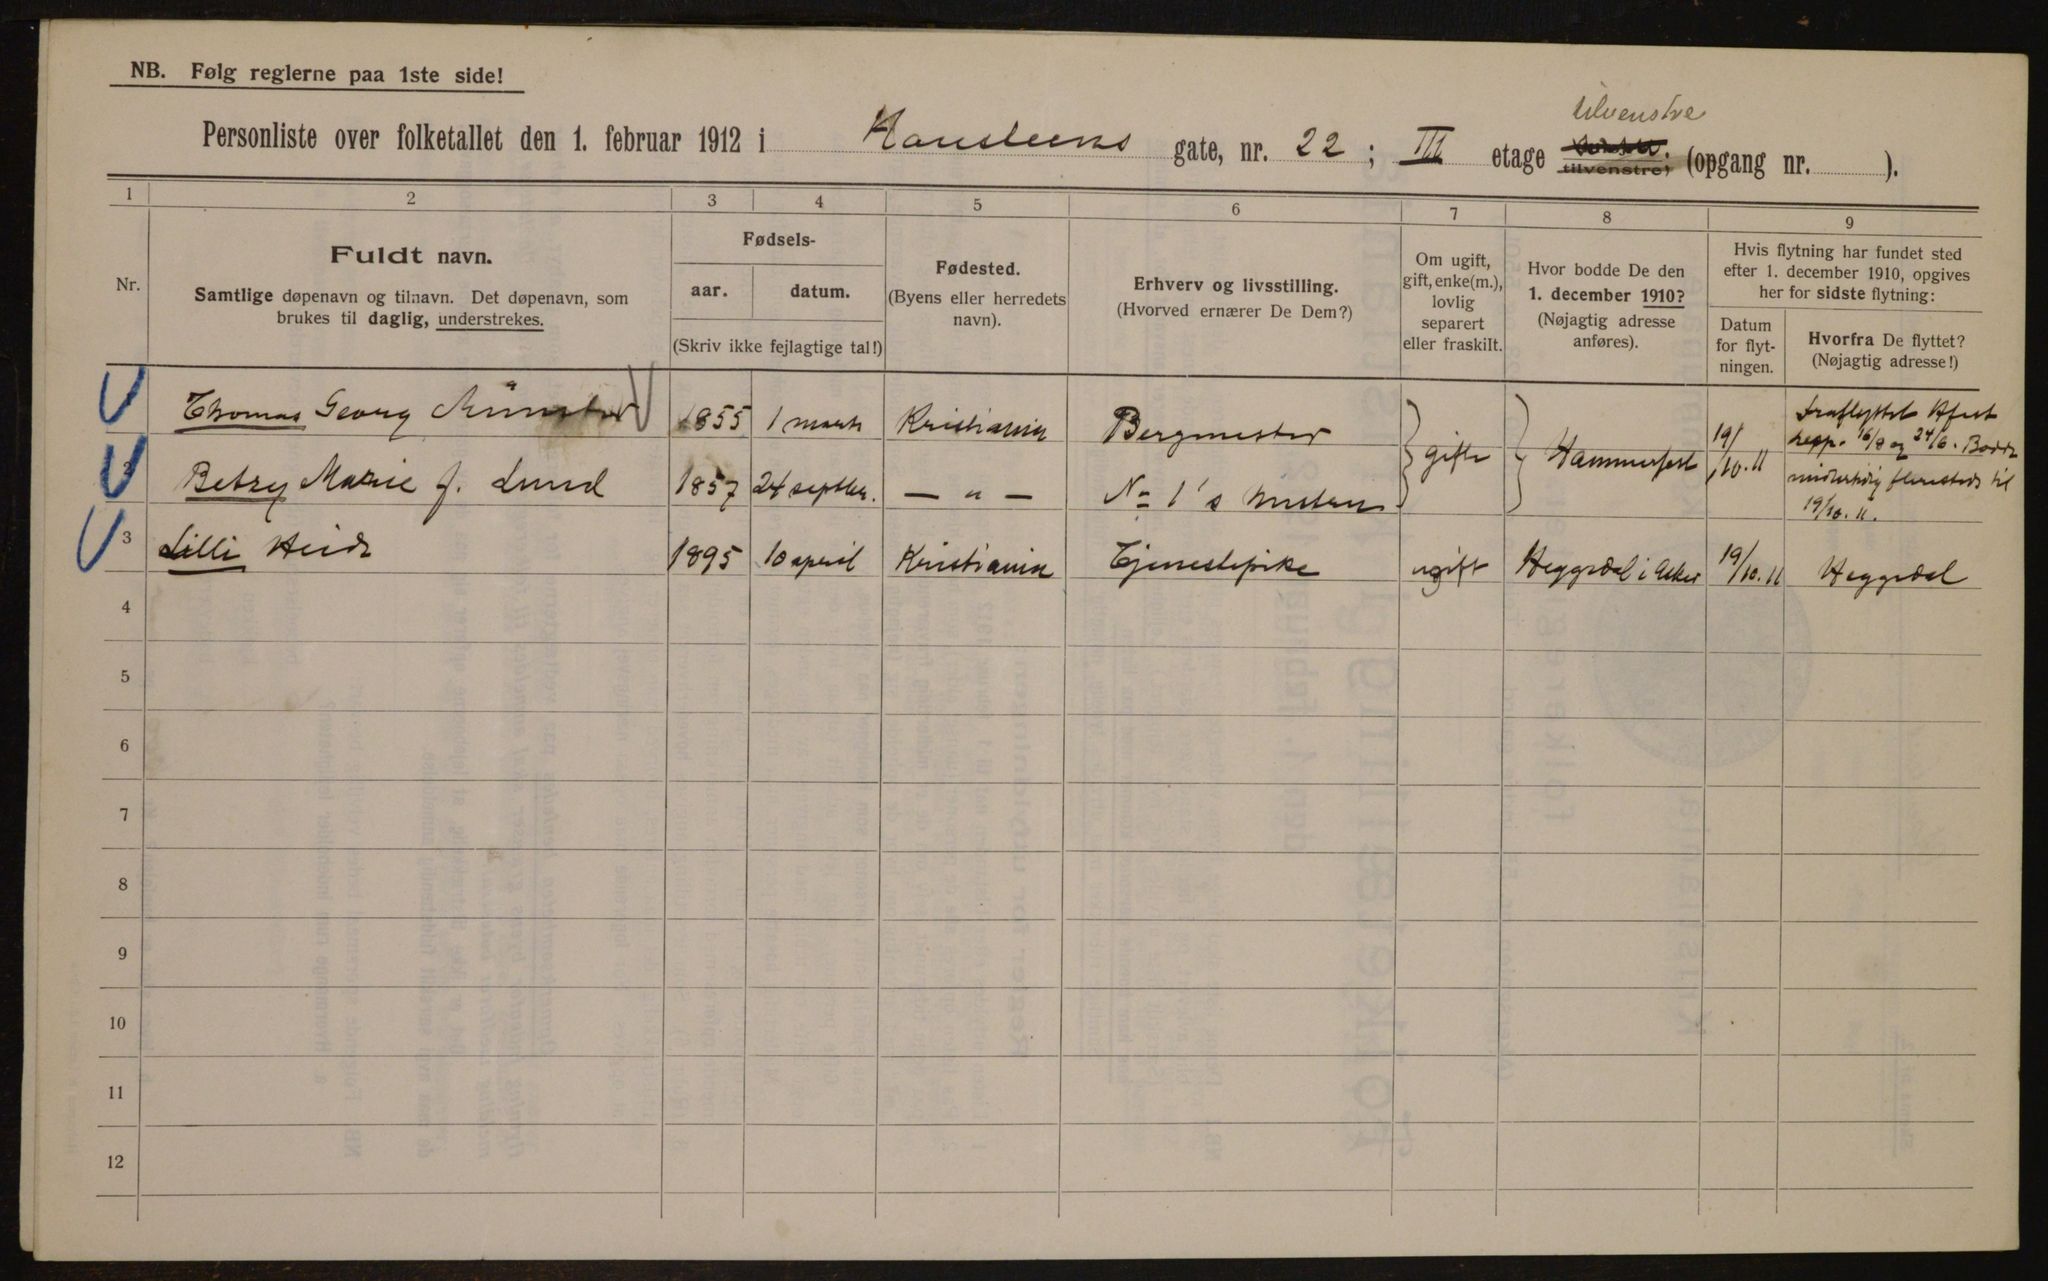 NB. Følg reglerne paa 1ste side!
tilvenstre
Personliste over folketallet den 1. februar 1912 i Hansteens gate, nr. 22; III etage tilvenstre; (opgang nr. ).
1 2 3 4 5 6 7 8 9
Nr.
Fuldt navn.
Samtlige døpenavn og tilnavn. Det døpenavn, som
brukes til daglig, understrekes.
Fødsels-
aar. datum.
(Skriv ikke fejlagtige tal!)
Fødested.
(Byens eller herredets
navn).
Erhverv og livsstilling.
(Hvorved ernærer De Dem?)
Om ugift,
gift, enke(m.),
lovlig
separert
eller fraskilt.
Hvor bodde De den
1. december 1910?
(Nøjagtig adresse
anføres).
Hvis flytning har fundet sted
efter 1. december 1910, opgives
her for sidste flytning:
Datum
for flyt-
ningen.
Hvorfra De flyttet?
(Nøjagtig adresse!)
Thomas Georg Münster 1855 1 marts Kristiania Bergmester gifte Hammerfest 19/10.11 Fraflyttet Hfest
resp. 16/8 og 24/6. Bodde
midlertidig flersteds til
19/10.11.
2 Betzy Marie f. Lund 1857 24 septbr. — " — No 1's hustru
3 Lilli Heide 1895 10 april Kristiania Tjenestepike ugift Heggedal i Asker 19/10.11 Heggedal
4
5
6
7
8
9
10
11
12